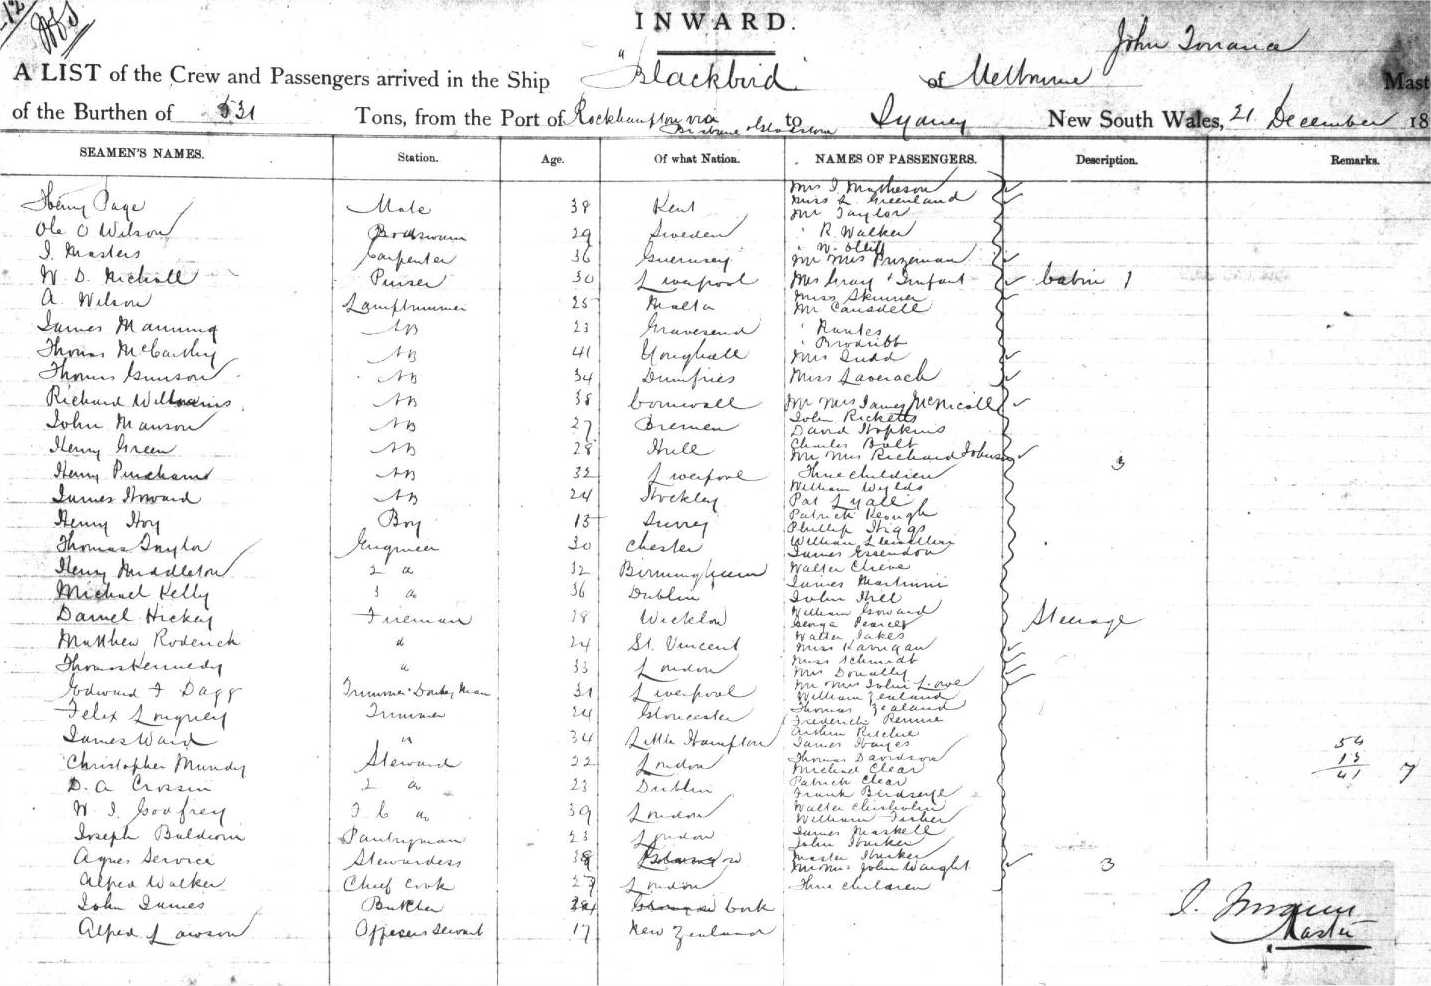 INWARD.
John Torrance
A LIST of the Crew and Passengers arrived in the Ship "Blackbird" of Melbourne Mast
of the Burthen of 531 Tons, from the Port of Rockhampton via Brisbane & Gladstone to Sydney New South Wales, 21 December 18
SEAMEN'S NAMES. Station. Age. Of what Nation. NAMES OF PASSENGERS. Description. Remarks.
Henry Page Mate 38 Kent
Ole O Wilson Boatswain 29 Sweden
J. Masters Carpenter 36 Guernsey
W. D. Nicholl Purser 30 Liverpool
A. Wilson Lamptrimmer 25 Malta
James Manning AB 23 Gravesend
Thomas McCarthy AB 41 Youghall
Thomas Gunson AB 34 Dumfries
Richard Williams AB 38 Cornwall
John Manson AB 27 Bremen
Henry Green AB 28 Hull
Henry Pinchams AB 32 Liverpool
James Howard AB 24 Stockley
Henry Hoy Boy 15 Surrey
Thomas Taylor Engineer 30 Chester
Henry Middleton 2 " 32 Birmingham
Michael Kelly 3 " 36 Dublin
Daniel Hickey Fireman 28 Wicklow
Matthew Roderick " 24 St. Vincent
Thomas Kennedy " 33 London
Edward F Dagg Trimmer & Donkey Man 31 Liverpool
Felix Longney Trimmer 24 Gloucester
James Ward " 34 Little Hampton
Christopher Mundy Steward 22 London
D. A Crossin 2 " 23 Dublin
W. J. Godfrey F C " 39 London
Joseph Baldwin Pantryman 23 London
Agnes Service Stewardess 38 Glasgow
Alfred Walker Chief Cook 27 London
John James Butcher 24 Cork
Alfred Lawson Officers Servant 17 New Zealand
Mrs J. Matheson
Miss L. Greenland
Mr Taylor
" R. Walker
" W. Olliff
Mr Mrs Prizeman
Mrs Gray & Infant Cabin 1
Miss Skinner
Mr Cansdell
" Nantes
" Brodribb
Mrs Judd
Miss Laverack
Mr Mrs James McNicoll
John Ricketts
David Hopkins
Charles Bolt
Mr Mrs Richard Johnson
Three children 3
William Wylds
Pat Lyall
Patrick Keough
Phillip Higgs
William Llewellin
James Essendon
Walter Cheve
James Martinni
John Hill
William Goward
George Pearcey
Walter Jakes
Steerage
Miss Kavigan
Miss Schmidt
Mrs Donally
Mr Mrs John Lowe
William Zealand
Thomas Zealand
Frederick Rennie
Arthur Ritchie
James Hayes
Thomas Davidson
Michael Clear
Patrick Clear
Frank Birdseye
Walter Chisholm
William Fisher
James Maskell
John Hunker
Master Hunker
Mr Mrs John Waight
Three children 3
54
13
41 7
J. Torrance
Master